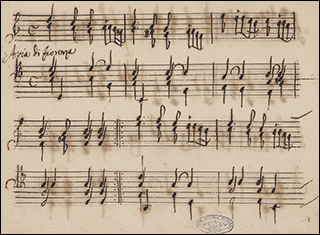 Aria di fiorenza